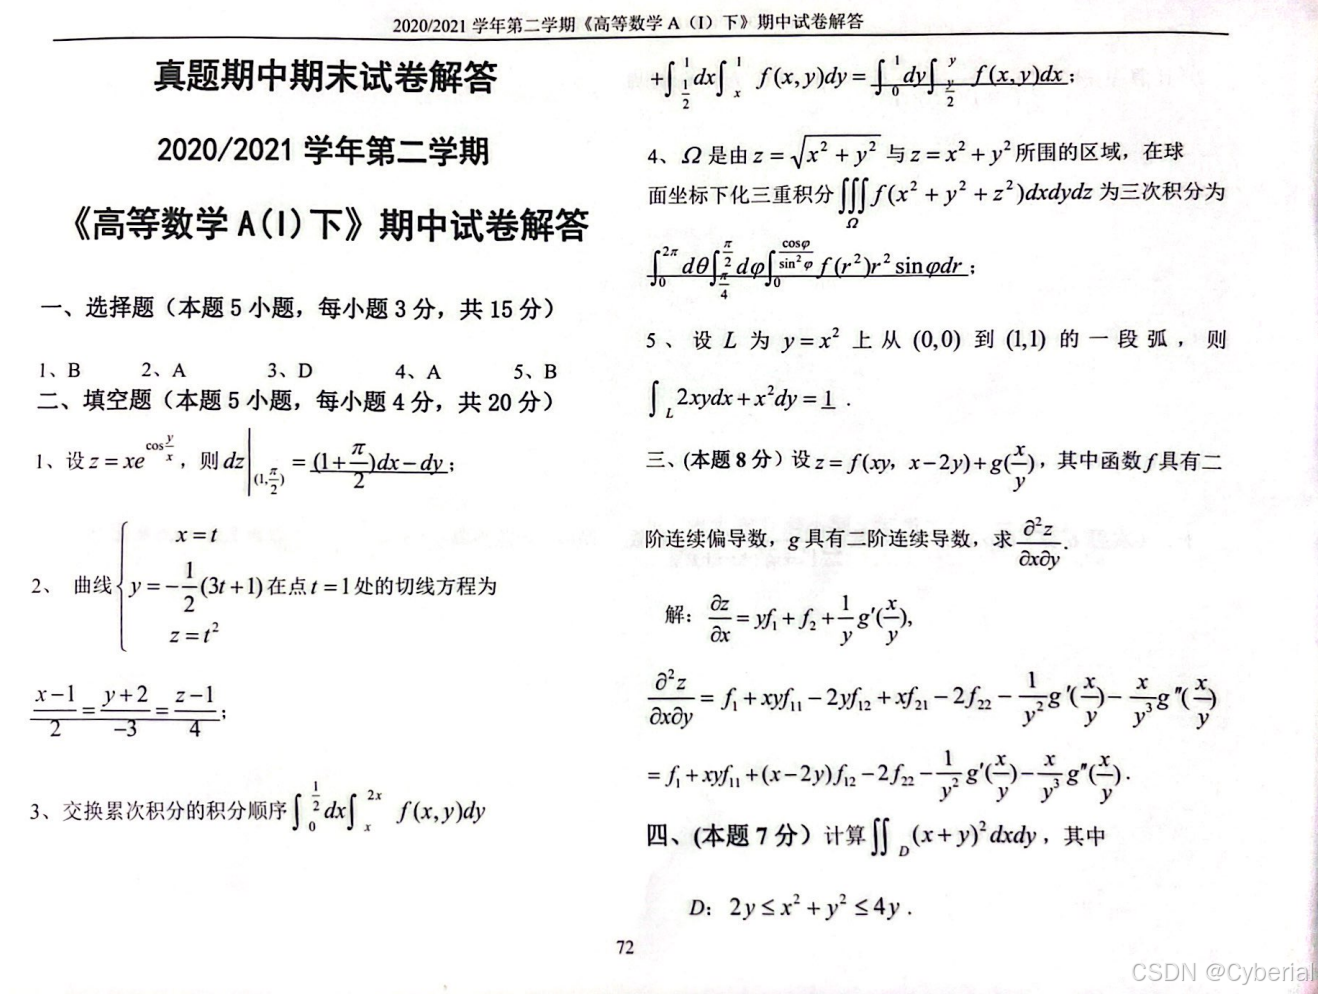 2020/2021 学年第二学期《高等数学 A（I）下》期中试卷解答
真题期中期末试卷解答
2020/2021 学年第二学期
《高等数学 A(I)下》期中试卷解答
一、选择题（本题 5 小题，每小题 3 分，共 15 分）
1、B 2、A 3、D 4、A 5、B
二、填空题（本题 5 小题，每小题 4 分，共 20 分）
1、设 z = xe^{cos\frac{y}{x}}，则 dz|_{(1,\frac{π}{2})} = (1+\frac{π}{2})dx − dy；
2、 曲线 { x = t
y = −\frac{1}{2}(3t+1) 在点 t = 1 处的切线方程为
z = t²
\frac{x−1}{2} = \frac{y+2}{−3} = \frac{z−1}{4}；
3、交换累次积分的积分顺序 ∫_0^{\frac{1}{2}} dx ∫_x^{2x} f(x,y)dy
+∫_{\frac{1}{2}}^1 dx ∫_x^1 f(x,y)dy = ∫_0^1 dy ∫_{\frac{y}{2}}^y f(x,y)dx；
4、Ω 是由 z = √(x² + y²) 与 z = x² + y² 所围的区域，在球
面坐标下化三重积分 ∭_Ω f(x² + y² + z²)dxdydz 为三次积分为
∫_0^{2π} dθ ∫_{\frac{π}{4}}^{\frac{π}{2}} dφ ∫_0^{\frac{cosφ}{sin²φ}} f(r²)r² sinφdr；
5、设 L 为 y = x² 上从 (0,0) 到 (1,1) 的一段弧，则
∫_L 2xydx + x²dy = 1 .
三、(本题 8 分）设 z = f(xy, x−2y)+g(\frac{x}{y})，其中函数 f 具有二
阶连续偏导数，g 具有二阶连续导数，求 \frac{∂²z}{∂x∂y}.
解：\frac{∂z}{∂x} = yf₁ + f₂ + \frac{1}{y}g′(\frac{x}{y}),
\frac{∂²z}{∂x∂y} = f₁ + xyf₁₁ − 2yf₁₂ + xf₂₁ − 2f₂₂ − \frac{1}{y²}g′(\frac{x}{y}) − \frac{x}{y³}g″(\frac{x}{y})
= f₁ + xyf₁₁ + (x−2y)f₁₂ − 2f₂₂ − \frac{1}{y²}g′(\frac{x}{y}) − \frac{x}{y³}g″(\frac{x}{y}).
四、(本题 7 分）计算 ∬_D (x+y)²dxdy，其中
D: 2y ≤ x² + y² ≤ 4y .
72
CSDN @Cyberial